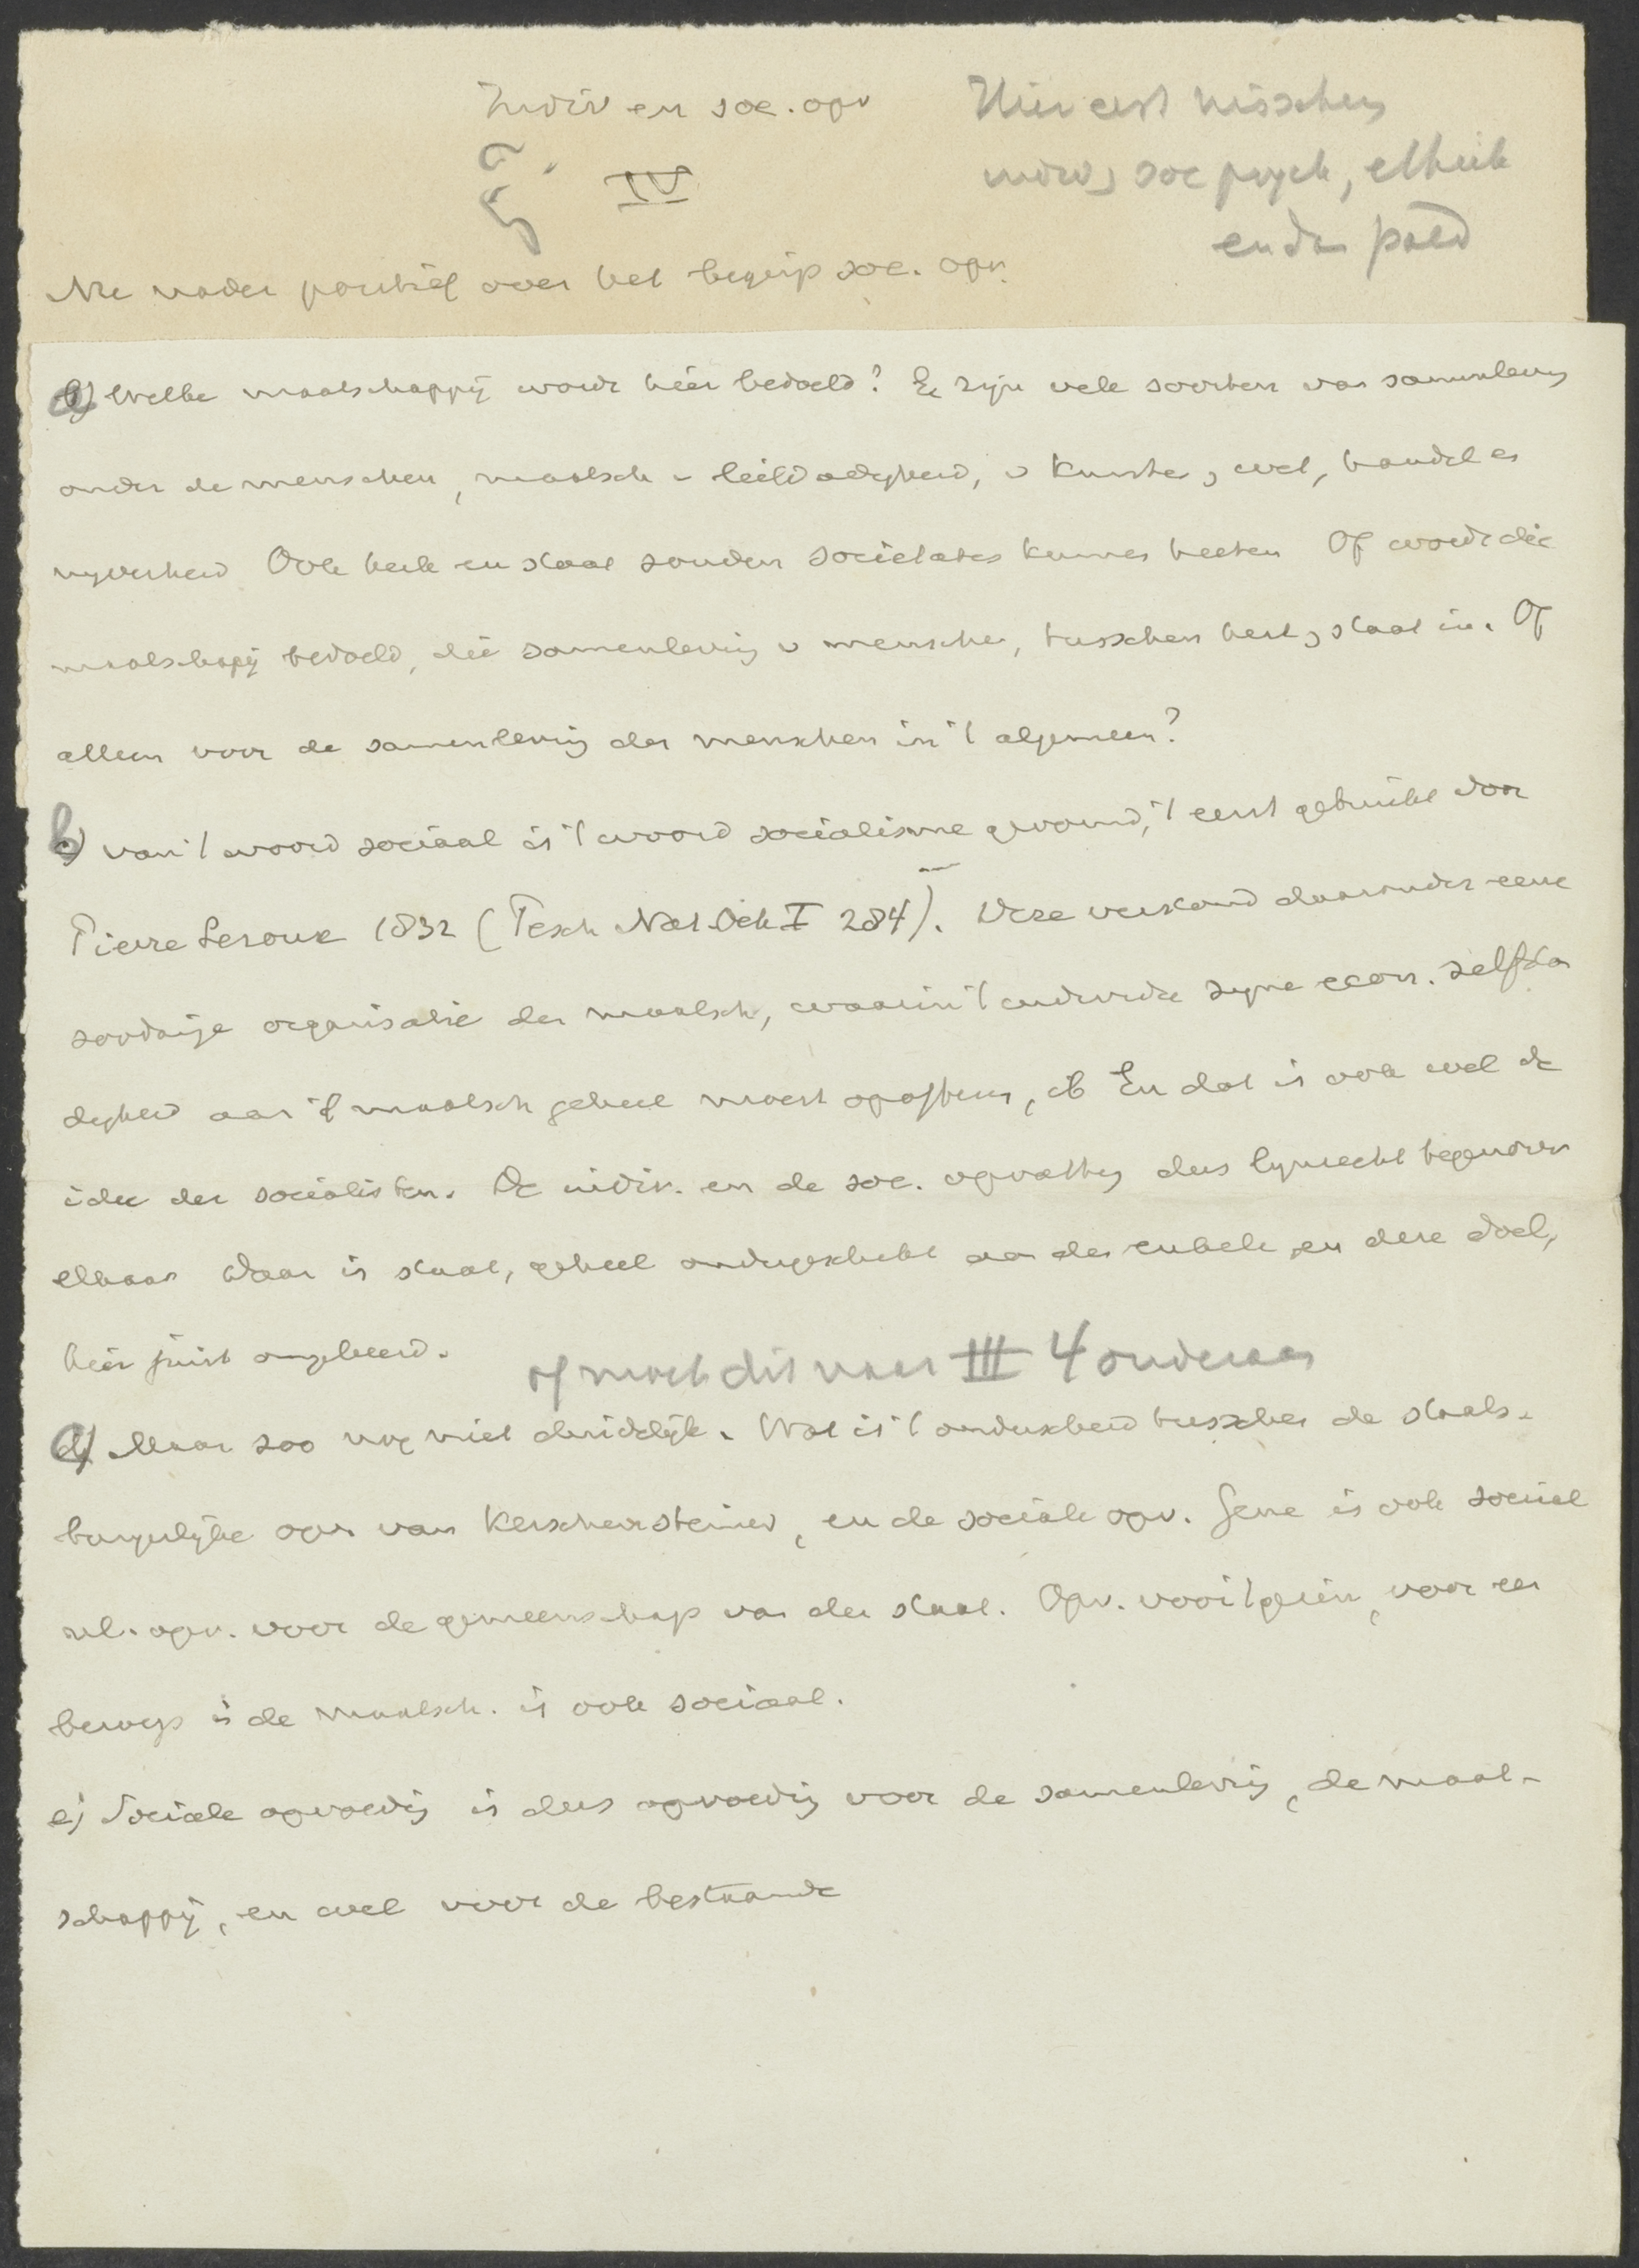 Indiv en soc. opv
Hier eerst tusschen
indiv, soc psych, ethiek
en dan paed
IV
Nu nader positief over het begrip soc. opv.
a) Welke maatschappij wordt hier bedoeld? Er zijn vele soorten van samenlevg
onder de menschen, maatsch v liefdadigheid, v kunsten, wet, handel en
nyverheid Ook kerk en staat zouden societates kunnen heeten Of wordt die
maatschappij bedoeld, die samenleving v menschen, tusschen kerk, staat in. Of
alleen voor de samenleving der menschen in 't algemeen?
b) van 't woord sociaal is 't woord socialisme gevormd, 't eerst gebruikt door
Pierre Leroux 1832 (Pesch Nat Oek I 284). Deze verstond daaronder eene
zoodanige organisatie der maatsch, waarin 't individu zyne econ. zelfstan
digheid aan 't maatsch geheel moest opofferen, ib En dat is ook wel de
idee der socialisten. De indiv. en de soc. opvatting dus lynrecht tegenover
elkaar daar is staat, geheel ondergeschikt aan den enkele en dere doel,
hier juist omgekeerd.
of moet dit naar III 4 onderaan
d) Maar zoo nog niet duidelijk. Wat is 't onderscheid tusschen de staats-
burgerlijke opv. van Kerschensteiner, en de sociale opv. Gene is ook sociaal
nl. opv. voor de gemeenschap van den staat. Opv. voor 't gezin, voor een
beroep in de maatsch. is ook sociaal.
e) Sociale opvoeding is dus opvoeding voor de samenleving, de maat-
schappij, en wel voor de bestaande